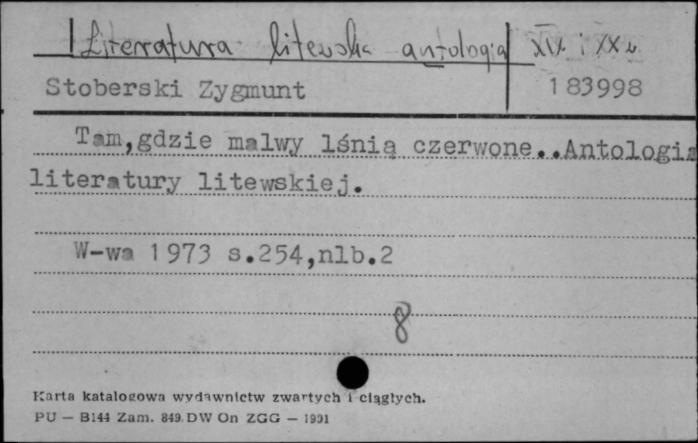 Literatura litewska antologia XIX i XX w.
Stoberski Zygmunt 183998
Tam,gdzie malwy lśnią czerwone..Antologia
literatury litewskiej.
W-wa 1973 s.254,nlb.2
8
Karta katalogowa wydawnictw zwartych i ciągłych.
PU — B144 Zam. 849. DW On ZGG — 1991